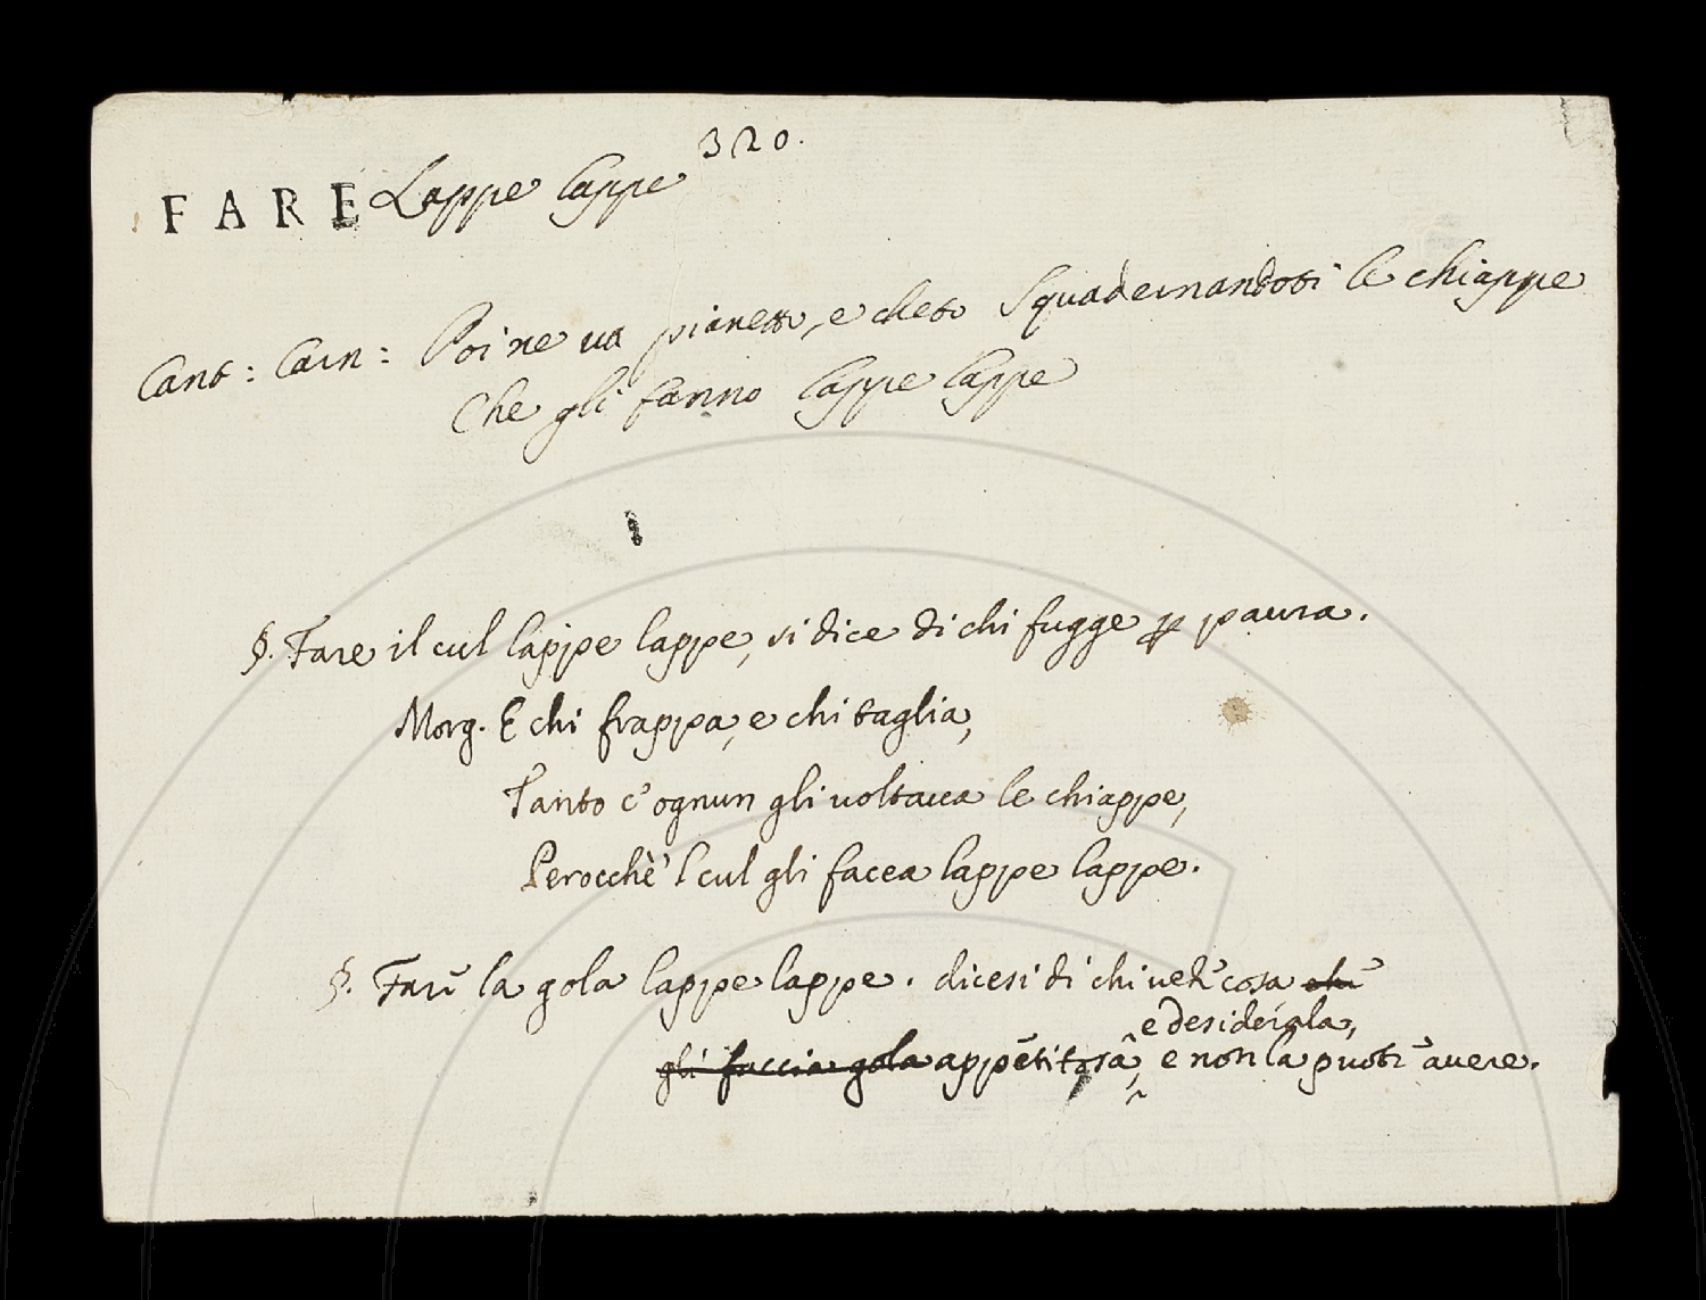 320.
FARE Lappe lappe
Cant: Carn: Poi ne va pianetto, e cheto Squadernandoti le chiappe
Che gli fanno lappe lappe
§. Fare il cul lappe lappe, si dice di chi fugge ꝑ paura.
Morg. E chi frappa, e chi taglia,
Tanto c'ognun gli voltava le chiappe,
Perocchè 'l cul gli facea lappe lappe.
§. Farē la gola lappe lappe. dicesi di chi vedē cosa chē
e desiderala,
gli faccia gola appētitosa, e non la puotē avere.